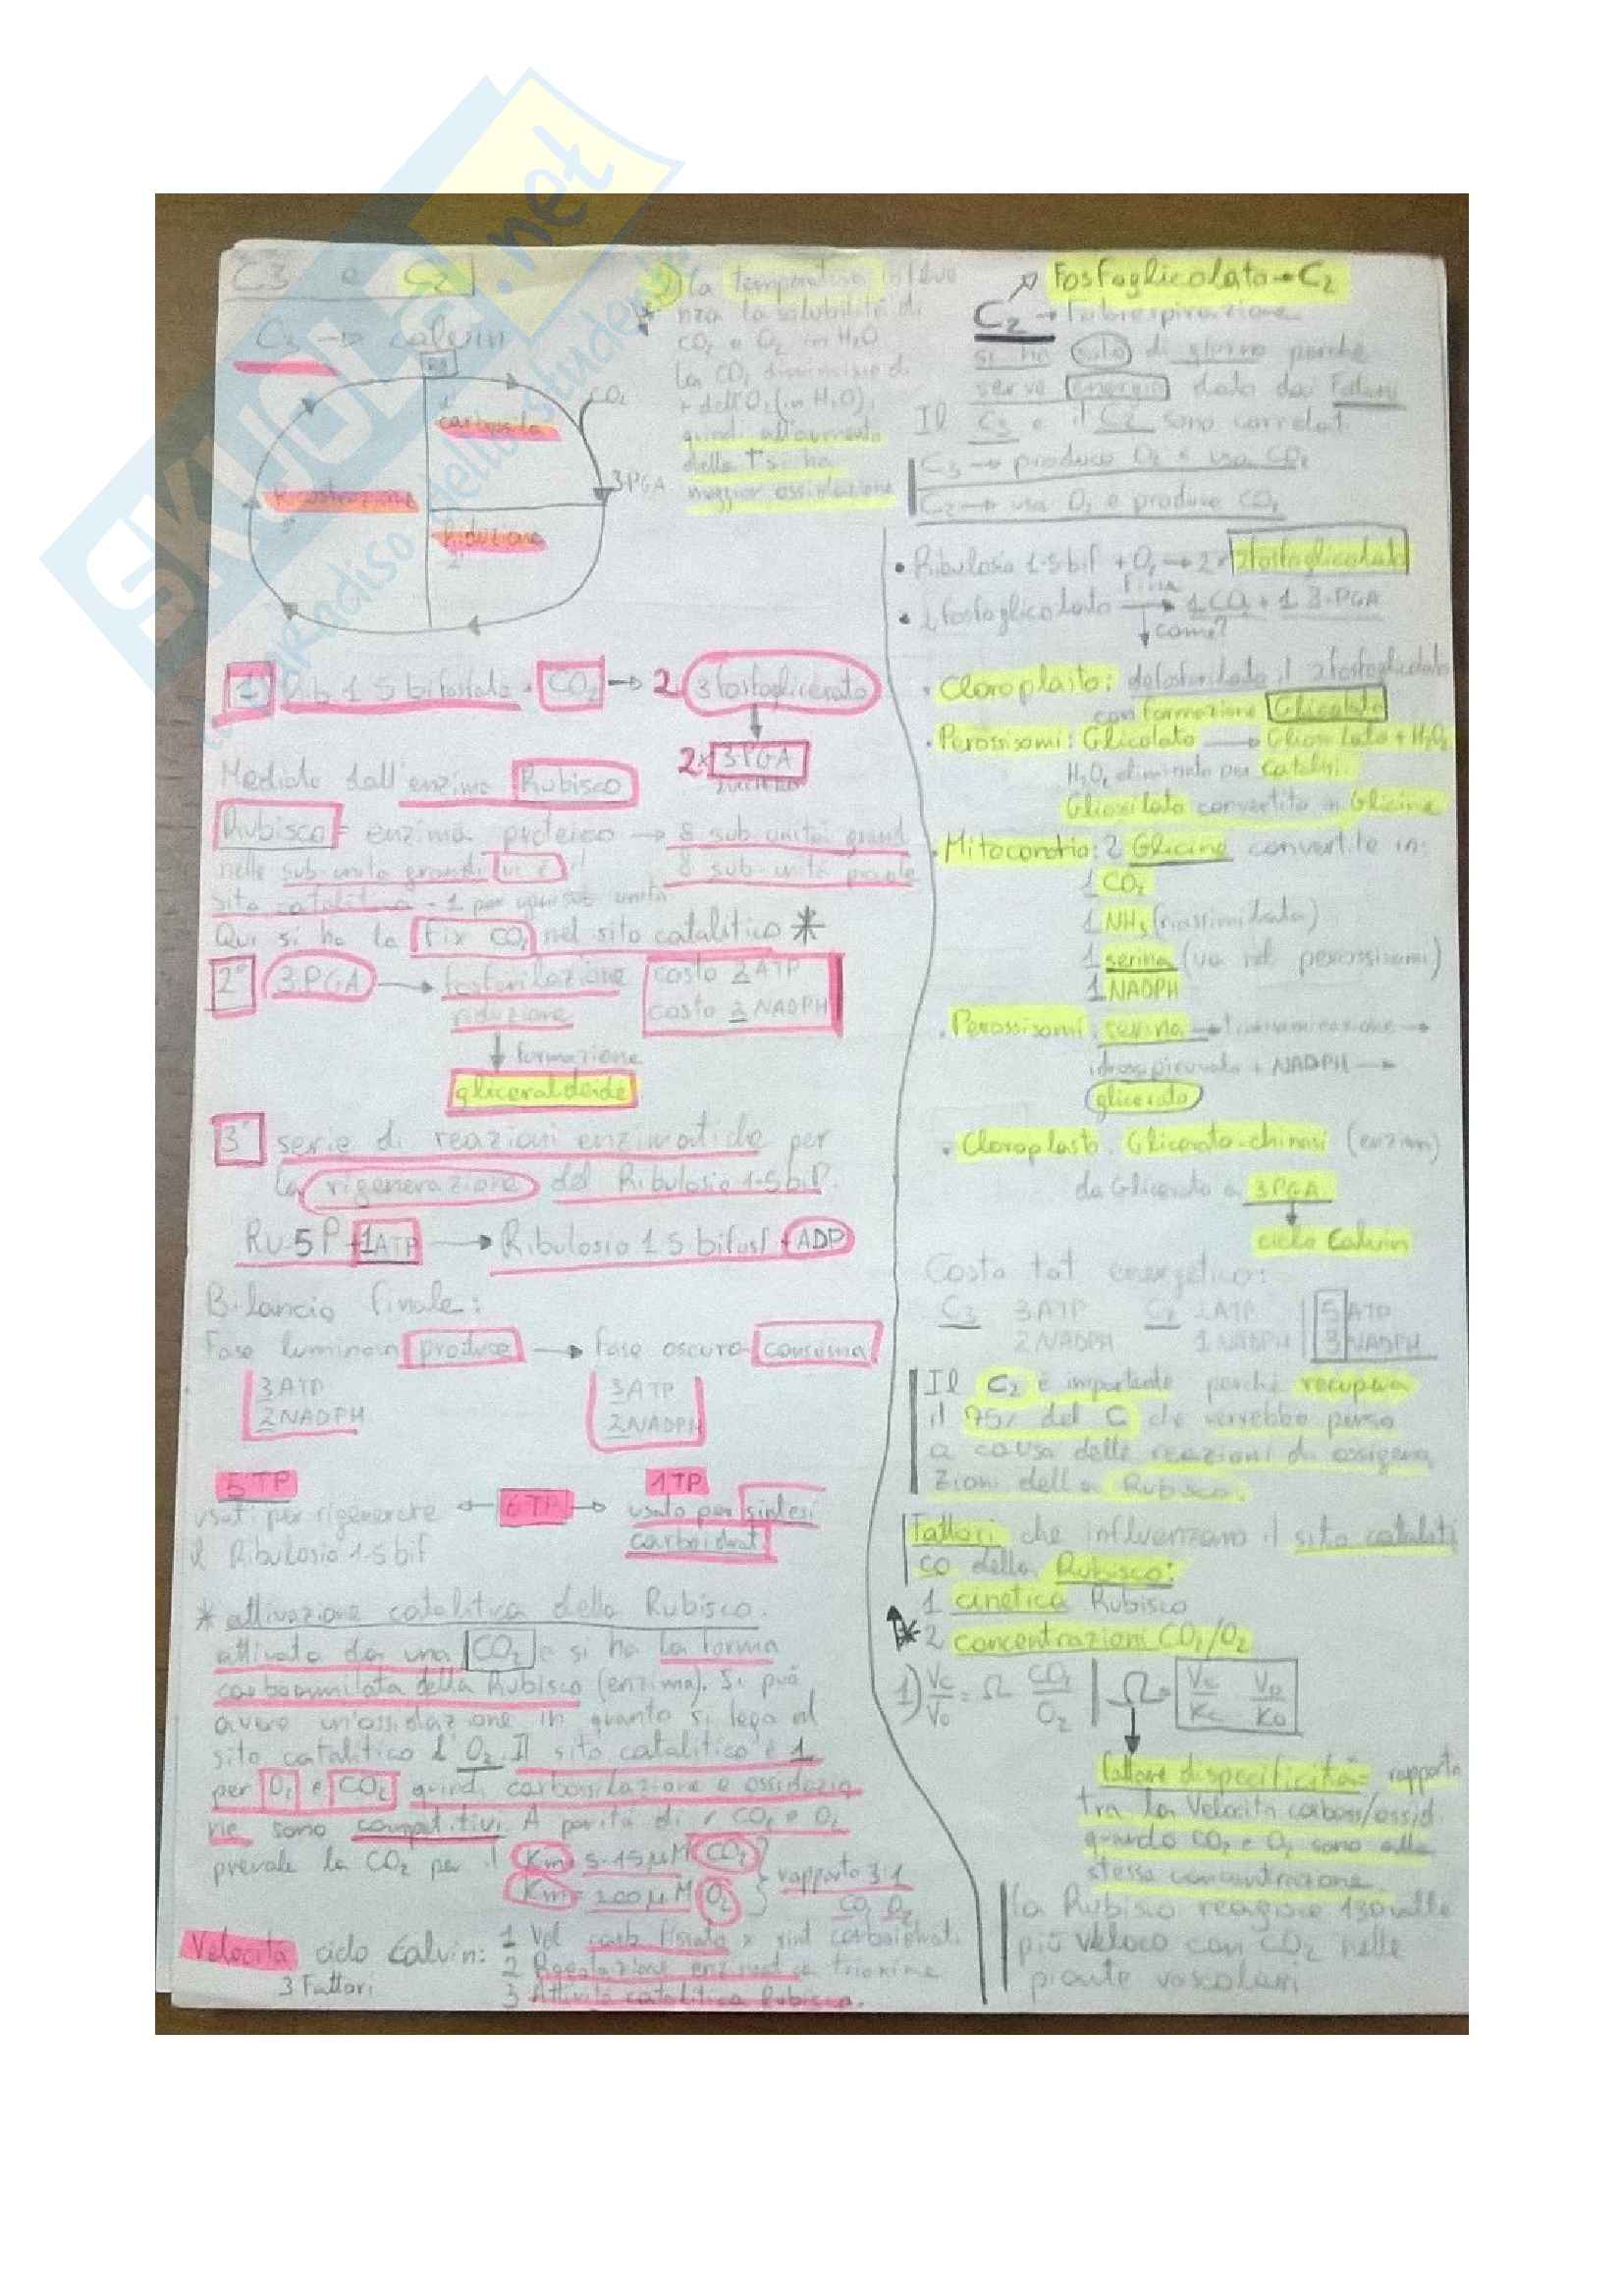 SKUOLA.net
C3 e C2
C3 → Calvin
1
carbossila
CO2
3PGA
Riduzione
2°
3°
2) La temperatura influe
nza la solubilità di
CO2 e O2 in H2O
la CO2 diminuisce di
+ dell'O2 (in H2O),
quindi all'aumento
della T° si ha
maggior ossidazione
1 Rib 1 5 bifosfato + CO2 → 2 3fosfoglicerato
2x 3PGA
Mediato dall'enzima Rubisco
Rubisco = enzima proteico → 8 sub unità grandi
8 sub unità piccole
nelle sub unità grandi vi è il
sito catalitico - 1 per ogni sub unità
Qui si ha la fix CO2 nel sito catalitico *
2° 3PGA → fosforilazione
riduzione
costo 2ATP
costo 2 NADPH
↓ formazione
gliceraldeide
3° serie di reazioni enzimatiche per
la rigenerazione del Ribulosio 1-5 bif.
Ru-5P + 1ATP → Ribulosio 1 5 bifosf + ADP
Bilancio finale:
Fase luminosa produce → Fase oscura consuma
3ATP
2NADPH
3ATP
2NADPH
5TP ← 6TP → 1TP
usati per rigenerare
il Ribulosio 1-5 bif
usato per sintesi
carboidrati
* attivazione catalitica della Rubisco.
attivata da una CO2 e si ha la forma
carbammilata della Rubisco (enzima). Si può
avere un'ossidazione in quanto si lega al
sito catalitico l'O2. Il sito catalitico è 1
per O2 e CO2 quindi carbossilazione e ossidazio
ne sono competitivi. A parità di CO2 e O2
prevale la CO2 per il Km = 5-15µM CO2
Km = 200µM O2
rapporto 3:1
CO2 O2
Velocità ciclo Calvin:
3 Fattori
1 Vel carb fissato x sint carboidrati
2 Regolazione enzimatica
3 Attività catalitica Rubisco.
Fosfoglicolato → C2
C2 → Fotorespirazione
si ha solo di giorno perché
serve energia data dai Fotoni
Il C3 e il C2 sono correlati
C3 → produco O2 e uso CO2
C2 → uso O2 e produco CO2
• Ribulosio 1-5 bif + O2 → 2x 2fosfoglicolato
• 2fosfoglicolato → 1 CO2 + 1 3-PGA
↓ come?
• Cloroplasto: defosforilato il 2fosfoglicolato
con formazione Glicolato
• Perossisomi: Glicolato → Gliossilato + H2O2
H2O2 eliminato per catalisi.
Gliossilato convertito in Glicine
• Mitocondrio: 2 Glicine convertite in:
1 CO2
1 NH3 (riassimilata)
1 serina (va nel perossisomi)
1 NADPH
• Perossisomi: serina → transaminazione →
idrossipiruvato + NADPH →
glicerato
• Cloroplasto. Glicerato-chinasi (enzimi)
da Glicerato a 3PGA
↓
ciclo Calvin
Costo tot energetico:
C3 3ATP C2 2ATP | 5 ATP
2NADPH 1NADPH | 3 NADPH
Il C2 è importante perché recupera
il 75% del C che verrebbe perso
a causa delle reazioni di ossigena
zioni della Rubisco.
Fattori che influenzano il sito cataliti
co della Rubisco:
1 cinetica Rubisco
* 2 concentrazioni CO2/O2
1) Vc/Vo = Ω CO2/O2 | Ω = Vc/Kc Vo/Ko
fattore di specificità = rapporto
tra la Velocità carboss/ossid.
quando CO2 e O2 sono alla
stessa concentrazione
la Rubisco reagisce 130 volte
più veloce con CO2 nelle
piante vascolari